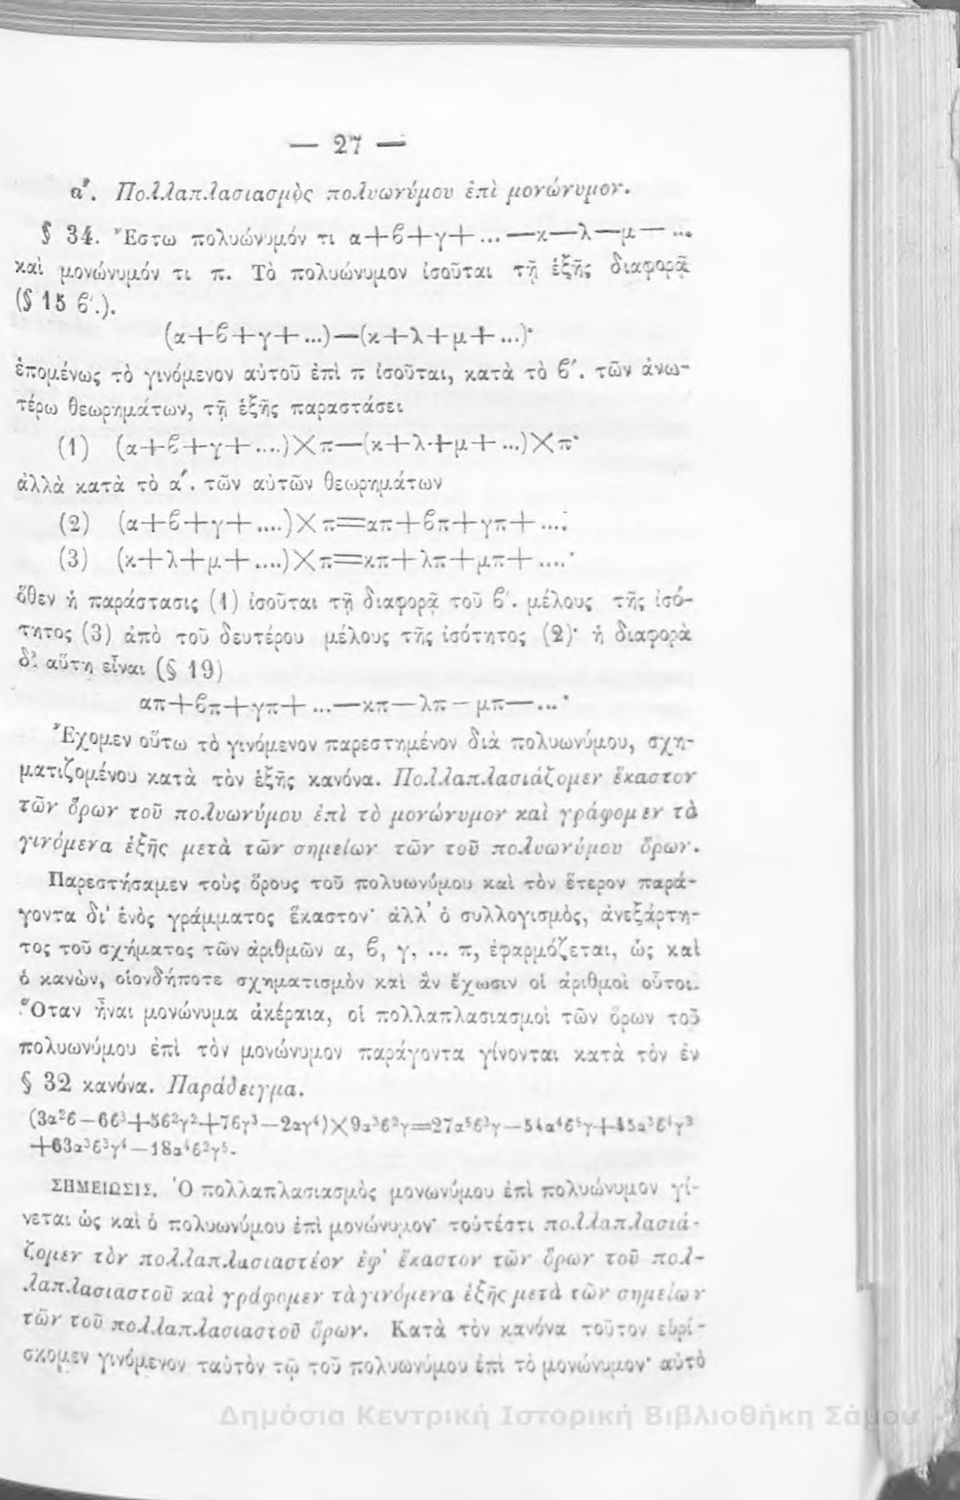 — 27 —
α'. Πολλαπλασιασμὸς πολυωνύμου ἐπὶ μονώνυμον.
§ 34. Ἔστω πολυώνυμόν τι α+β+γ+...—κ—λ—μ—...
καὶ μονώνυμόν τι π. Τὸ πολυώνυμον ἰσοῦται τῇ ἑξῆς διαφορᾷ
(§ 15 β'.).
(α+β+γ+...)—(κ+λ+μ+...)·
ἑπομένως τὸ γινόμενον αὐτοῦ ἐπὶ π ἰσοῦται, κατὰ τὸ β'. τῶν ἀνω-
τέρω θεωρημάτων, τῇ ἑξῆς παραστάσει
(1) (α+β+γ+....)×π—(κ+λ+μ+...)×π·
ἀλλὰ κατὰ τὸ α'. τῶν αὐτῶν θεωρημάτων
(2) (α+β+γ+....)×π=απ+βπ+γπ+....
(3) (κ+λ+μ+....)×π=κπ+λπ+μπ+....·
ὅθεν ἡ παράστασις (1) ἰσοῦται τῇ διαφορᾷ τοῦ β'. μέλους τῆς ἰσό-
τητος (3) ἀπὸ τοῦ δευτέρου μέλους τῆς ἰσότητος (2)· ἡ διαφορὰ
δ'. αὕτη εἶναι (§ 19)
απ+βπ+γπ+...—κπ—λπ—μπ—...·
Ἔχομεν οὕτω τὸ γινόμενον παρεστημένον διὰ πολυωνύμου, σχη-
ματιζομένου κατὰ τὸν ἑξῆς κανόνα. Πολλαπλασιάζομεν ἕκαστον
τῶν ὅρων τοῦ πολυωνύμου ἐπὶ τὸ μονώνυμον καὶ γράφομεν τὰ
γινόμενα ἑξῆς μετὰ τῶν σημείων τῶν τοῦ πολυωνύμου ὅρων.
Παρεστήσαμεν τοὺς ὅρους τοῦ πολυωνύμου καὶ τὸν ἕτερον παρά-
γοντα δι' ἑνὸς γράμματος ἕκαστον· ἀλλ' ὁ συλλογισμὸς, ἀνεξάρτη-
τος τοῦ σχήματος τῶν ἀριθμῶν α, β, γ, ... π, ἐφαρμόζεται, ὡς καὶ
ὁ κανὼν, οἱονδήποτε σχηματισμὸν καὶ ἂν ἔχωσιν οἱ ἀριθμοὶ οὗτοι.
Ὅταν ἦναι μονώνυμα ἀκέραια, οἱ πολλαπλασιασμοὶ τῶν ὅρων τοῦ
πολυωνύμου ἐπὶ τὸν μονώνυμον παράγοντα γίνονται κατὰ τὸν ἐν
§ 32 κανόνα. Παράδειγμα.
(3α²β—6β³+5β²γ²+7βγ³—2αγ⁴)×9α³β²γ=27α⁵β³γ—54α³β⁵γ+45α³β⁴γ³
+63α³β³γ⁴—18α⁴β²γ⁵.
ΣΗΜΕΙΩΣΙΣ. Ὁ πολλαπλασιασμὸς μονωνύμου ἐπὶ πολυώνυμον γί-
νεται ὡς καὶ ὁ πολυωνύμου ἐπὶ μονώνυμον· τουτέστι πολλαπλασιά-
ζομεν τὸν πολλαπλασιαστέον ἐφ' ἕκαστον τῶν ὅρων τοῦ πολ-
λαπλασιαστοῦ καὶ γράφομεν τὰ γινόμενα ἑξῆς μετὰ τῶν σημείων
τῶν τοῦ πολλαπλασιαστοῦ ὅρων. Κατὰ τὸν κανόνα τοῦτον εὑρί-
σκομεν γινόμενον ταὐτὸν τῷ τοῦ πολυωνύμου ἐπὶ τὸ μονώνυμον· αὐτὸ
Δημόσια Κεντρική Ιστορική Βιβλιοθήκη Σάμου